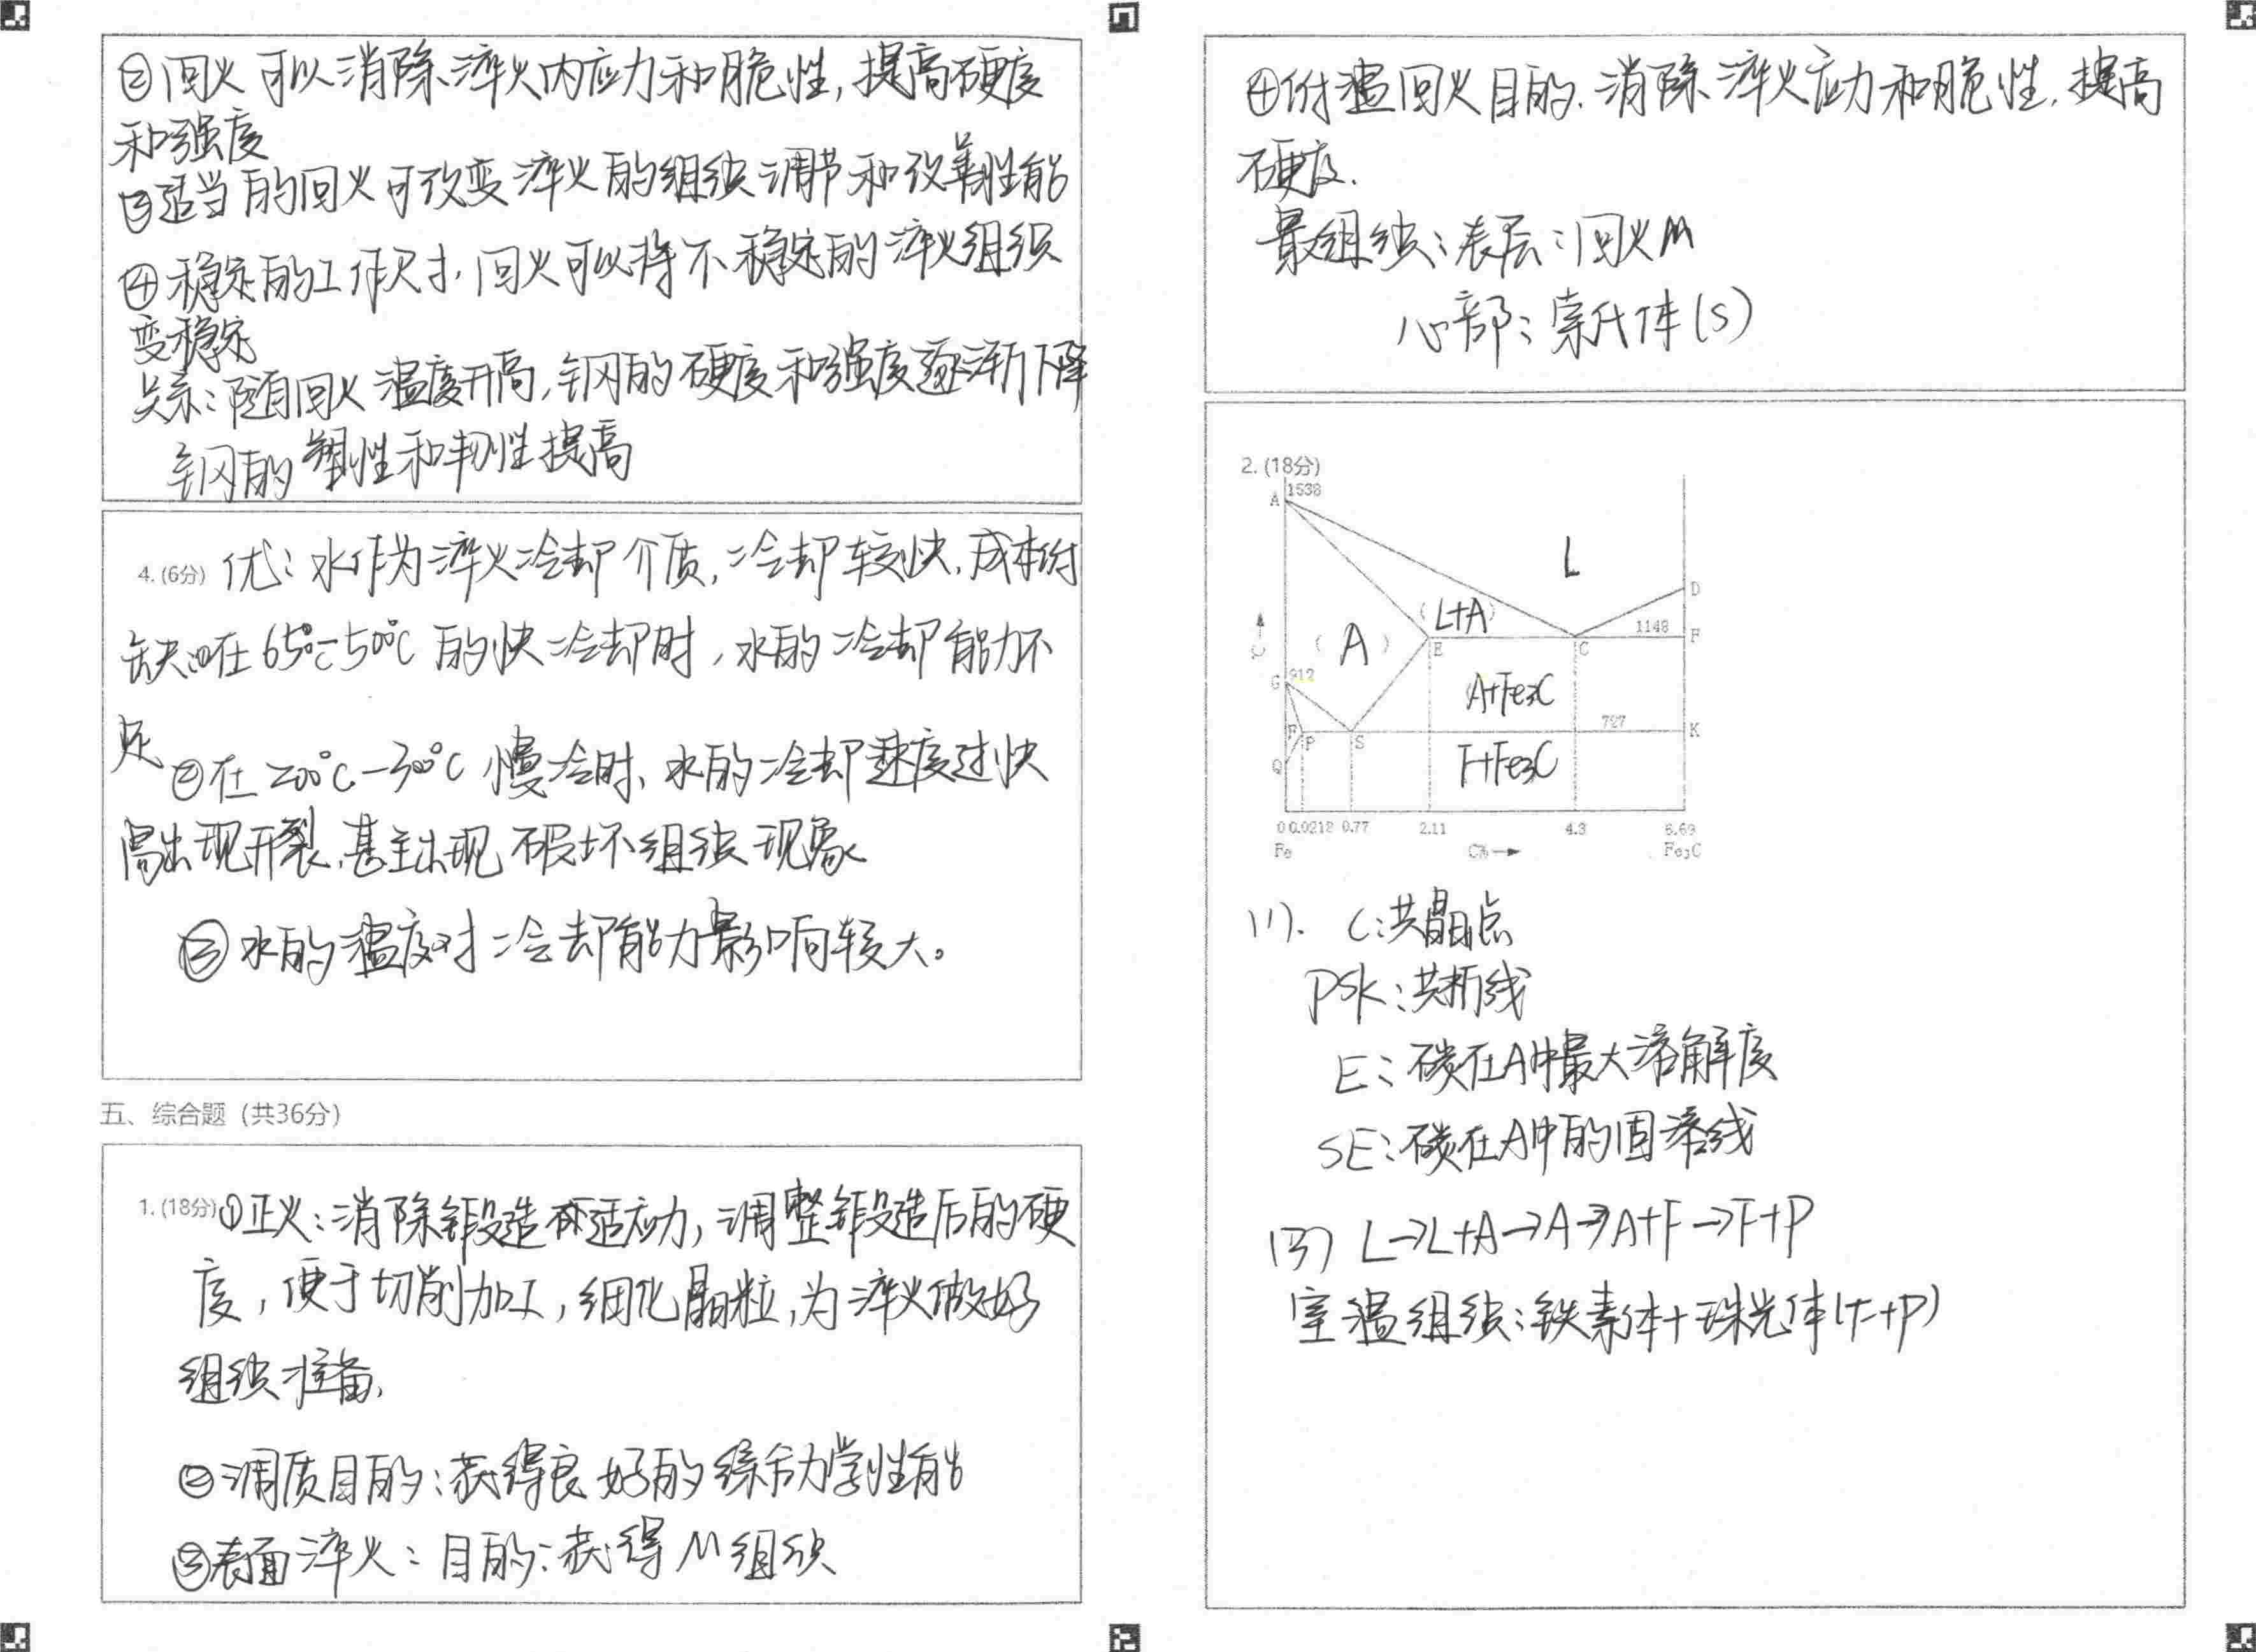 ②回火可以消除淬火内应力和脆性,提高硬度
和强度
③适当的回火可改变淬火的组织调节和改善性能
④稳定的工作尺寸,回火可以将不稳定的淬火组织
变稳定
关系:随回火温度升高,钢的硬度和强度逐渐下降
钢的塑性和韧性提高
4. (6分) 优:水作为淬火冷却介质,冷却较快,成本低
缺:①在650℃-500℃的快冷却时,水的冷却能力不
足 ②在200℃-300℃慢冷时,水的冷却速度过快
易出现开裂,甚至出现破坏组织现象
③水的温度对冷却能力影响较大。
五、综合题 (共36分)
1. (18分) ①正火:消除锻造应力,调整锻造后的硬
度,便于切削加工,细化晶粒,为淬火做好
组织准备,
②调质目的:获得良好的综合力学性能
③表面淬火:目的:获得M组织
④低温回火目的.消除淬火应力和脆性,提高
硬度.
组织:表层:回火M
心部:索氏体(S)
2. (18分)
A 1538
L
D
(L+A)
1148 F
(A)
E C
℃
G 912
A+Fe3C
727 K
F P S
F+Fe3C
Q
0 0.0218 0.77 2.11 4.3 6.69
Fe C% Fe₃C
(1). C:共晶点
PSK:共析线
E:碳在A中最大溶解度
SE:碳在A中的固溶线
(3) L→L+A→A→A+F→F+P
室温组织:铁素体+珠光体(F+P)